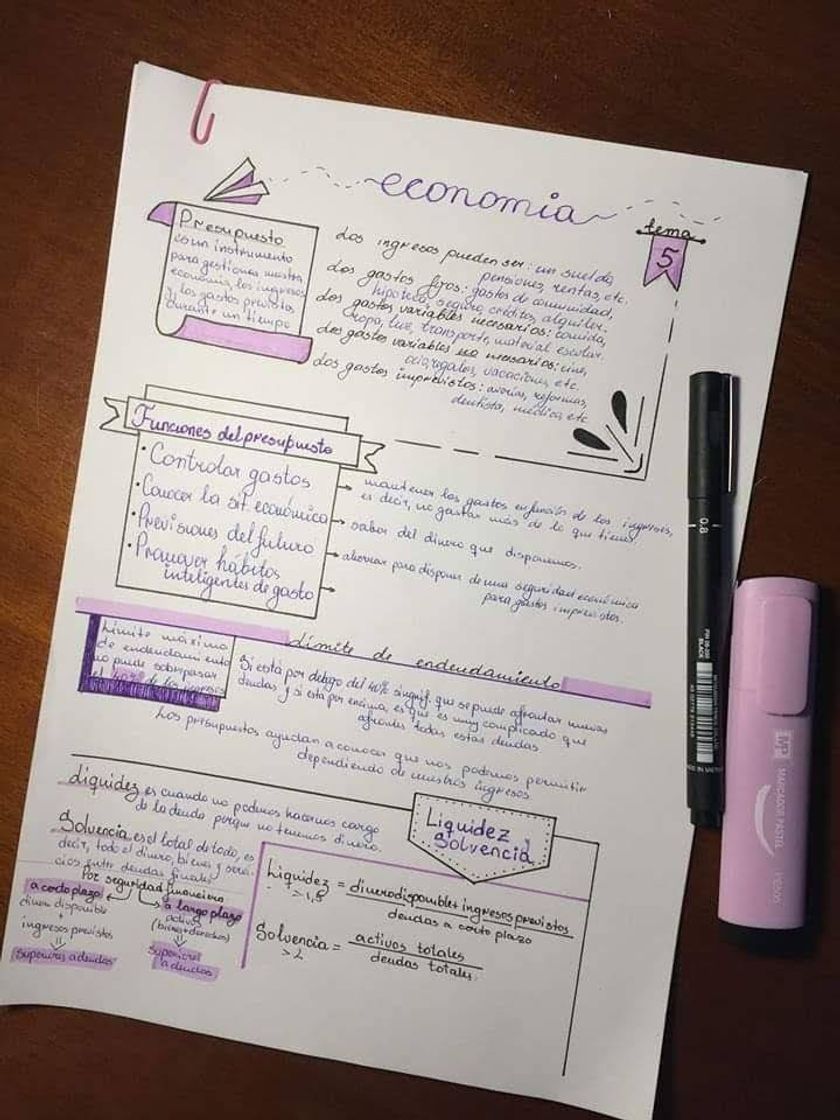 economia
tema
5
Presupuesto
es un instrumento
para gestionar nuestra
economía, los ingresos
y los gastos previstos
durante un tiempo
Los ingresos pueden ser: un sueldo,
pensiones, rentas, etc.
Los gastos fijos: gastos de comunidad,
hipoteca, seguro, créditos, alquiler.
Los gastos variables necesarios: comida,
ropa, luz, transporte, material escolar.
Los gastos variables no necesarios: cine,
ocio, regalos, vacaciones, etc.
Los gastos imprevistos: averías, reformas,
dentista, médico, etc
Funciones del presupuesto
· Controlar gastos
· Conocer la sit económica
· Previsiones del futuro
· Promover hábitos
inteligentes de gasto
mantener los gastos en función de los ingresos,
es decir, no gastar más de lo que tienes.
saber del dinero que disponemos.
ahorrar para disponer de una seguridad económica
para gastos imprevistos.
Límite de endeudamiento
Límite máximo
de endeudamiento
no puede sobrepasar
el 40% de los ingresos
Si está por debajo del 40% signif. que se puede afrontar nuevas
deudas y si está por encima, es que es muy complicado que
afrontes todas estas deudas
Los presupuestos ayudan a conocer que nos podemos permitir
dependiendo de nuestros ingresos
Liquidez y
Solvencia
Liquidez es cuando no podemos hacernos cargo
de la deuda porque no tenemos dinero.
Solvencia es el total de todo, es
decir, todo el dinero, bienes y
deudas finales
Por seguridad financiera
a corto plazo
dinero disponible
+
ingresos previstos
=
superiores a deudas
a largo plazo
activos
(bienes + derechos)
=
superiores
a deudas
Liquidez = dinero disponible + ingresos previstos
> 1,5
deudas a corto plazo
Solvencia = activos totales
> 2
deudas totales.
0.8
BLACK
MARCADOR PASTEL